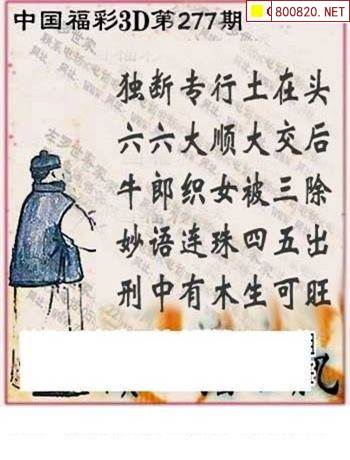 中国福彩3D第277期
800820.NET
独断专行土在头
六六大顺大交后
牛郎织女被三除
妙语连珠四五出
刑中有木生可旺